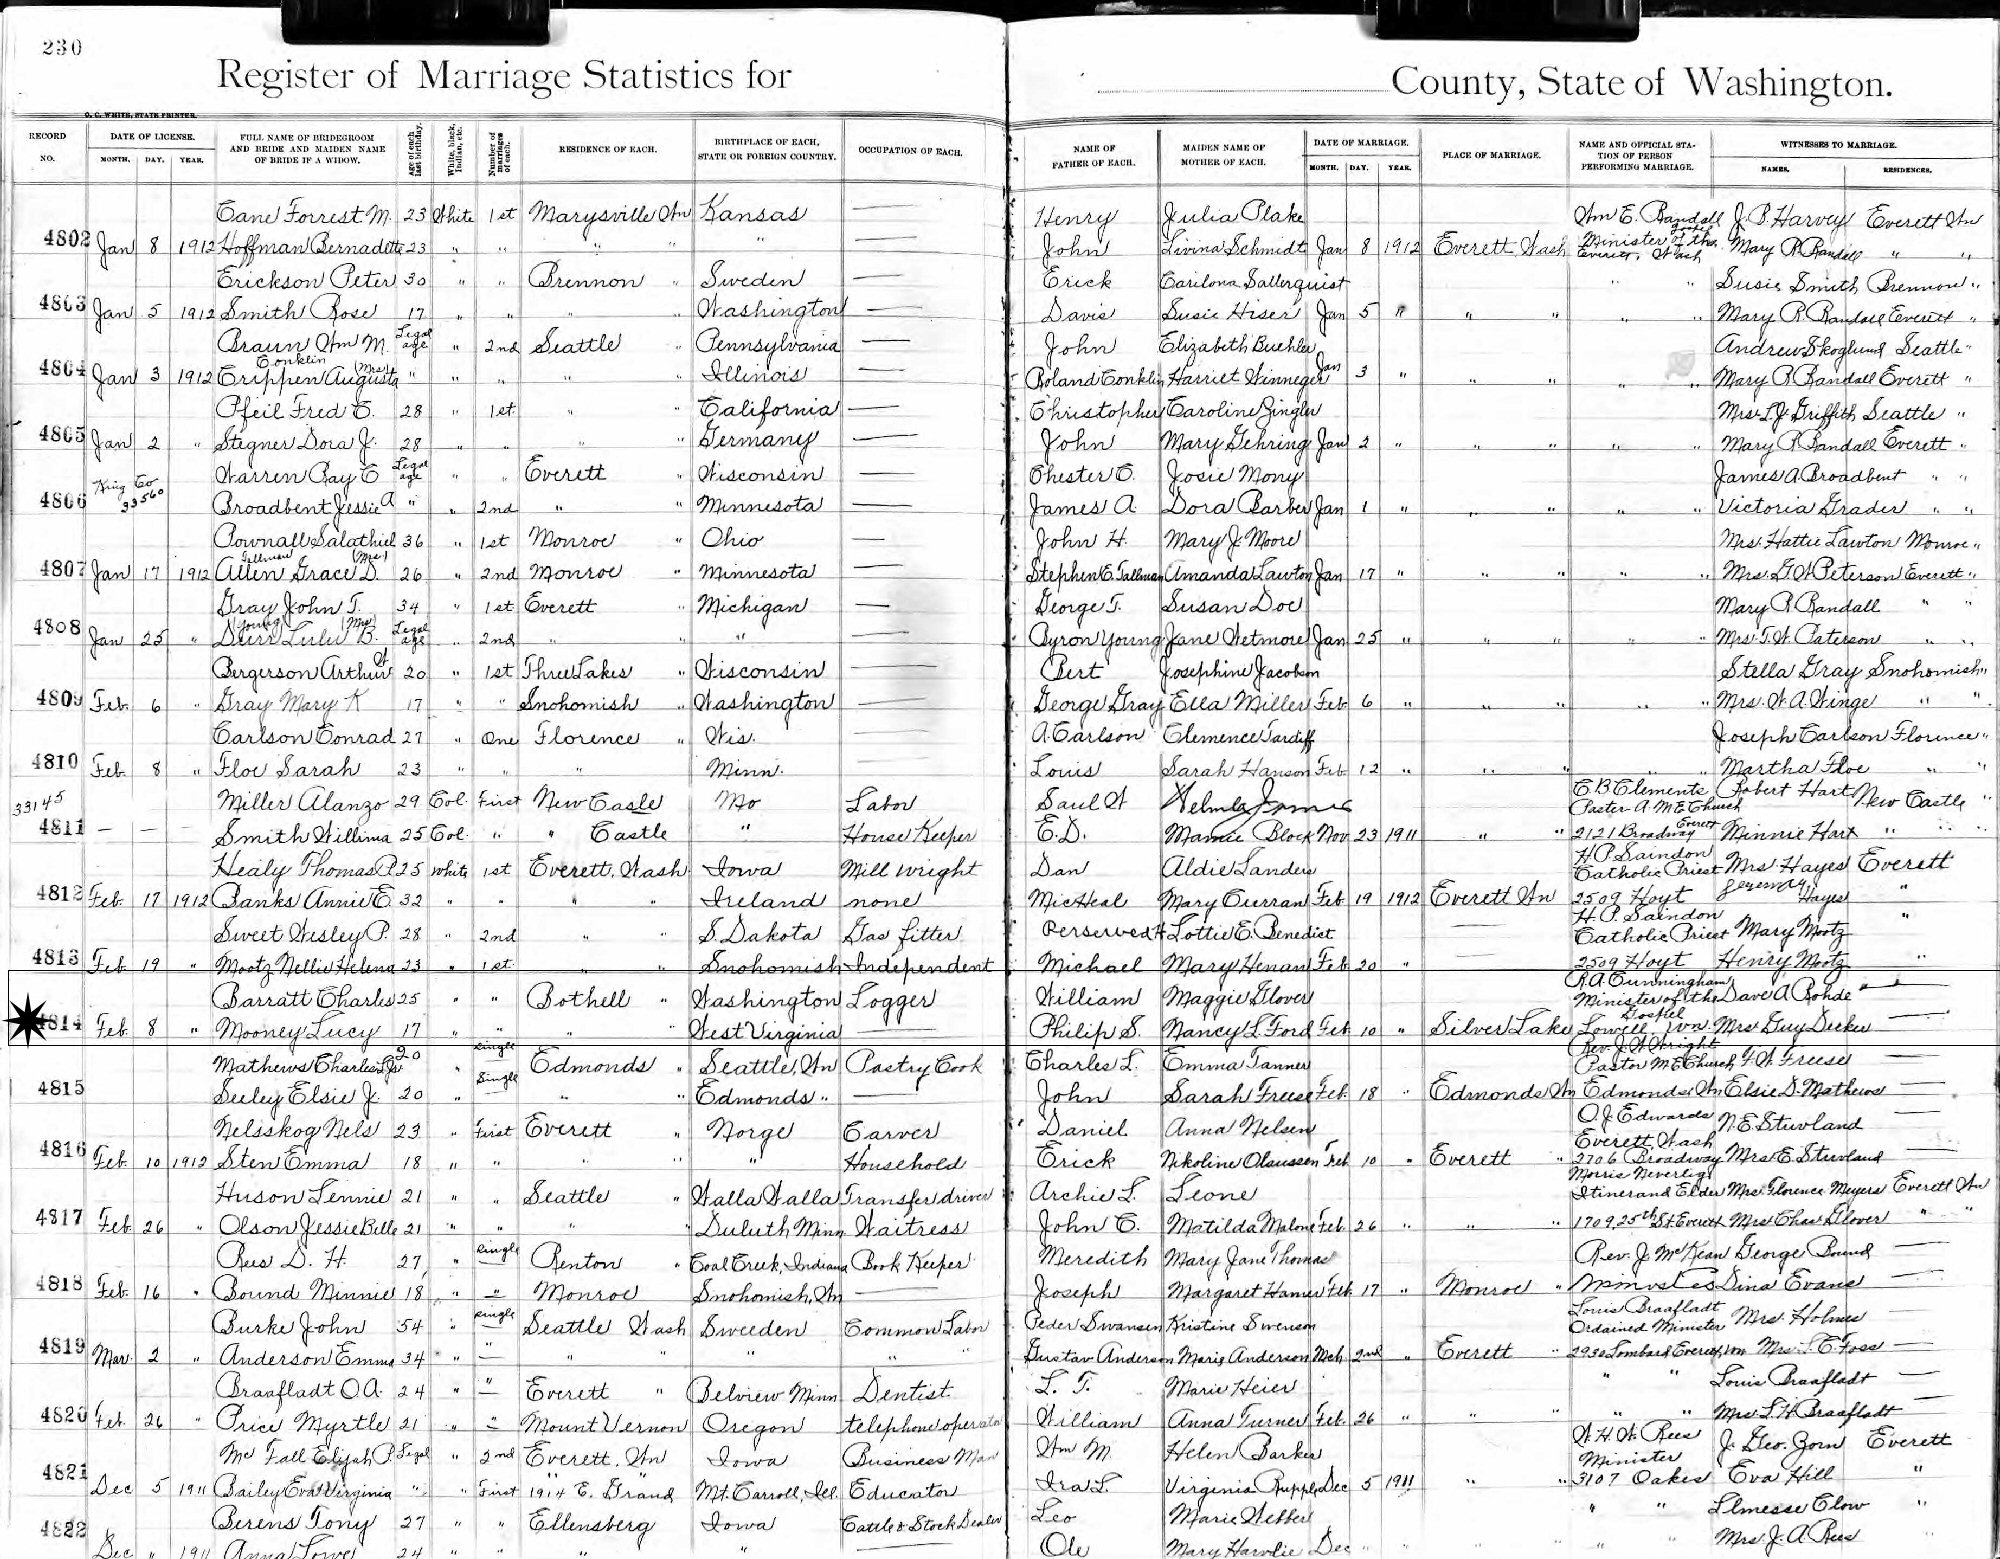 230
Register of Marriage Statistics for County, State of Washington.
O. C. WHITE, STATE PRINTER.
RECORD NO. DATE OF LICENSE. MONTH. DAY. YEAR. FULL NAME OF BRIDEGROOM AND BRIDE AND MAIDEN NAME OF BRIDE IF A WIDOW. Age of each last birthday. White, black, Indian, etc. Number of marriages of each. RESIDENCE OF EACH. BIRTHPLACE OF EACH, STATE OR FOREIGN COUNTRY. OCCUPATION OF EACH. NAME OF FATHER OF EACH. MAIDEN NAME OF MOTHER OF EACH. DATE OF MARRIAGE. MONTH. DAY. YEAR. PLACE OF MARRIAGE. NAME AND OFFICIAL STATION OF PERSON PERFORMING MARRIAGE. WITNESSES TO MARRIAGE. NAMES. RESIDENCES.
Cane Forrest M. 23 White 1st Marysville Wn Kansas Henry Julia Plake Wm E. Randall J. B. Harvey Everett Wn
4802 Jan 8 1912 Hoffman Bernadette 23 " " " " " John Livina Schmidt Jan 8 1912 Everett Wash Minister of the Gospel Everett, Wash Mary R Randall " "
Erickson Peter 30 " " Brennon " Sweden Erick " " Susie Smith Brennon "
4803 Jan 5 1912 Smith Rose 17 " " " " Washington Davis Susie Hiser Jan 5 " " " " " Mary R. Randall Everett "
Braun Wm M. Legal age " 2nd Seattle " Pennsylvania — John Elizabeth Buehler Andrew Skoglund Seattle "
4804 Jan 3 1912 Conklin Crippen Augusta (Mrs) " " " " " Illinois — Roland Conklin Harriet Winneger Jan 3 " " " " " Mary R. Randall Everett "
Pfeil Fred C. 28 " 1st " " California — Christopher Caroline Zingler Mrs L. J. Griffith Seattle "
4805 Jan 2 " Stegner Dora J. 28 " " " " Germany — John Mary Gehring Jan 2 " " " " " Mary R Randall Everett "
Warren Ray C Legal age " " Everett " Wisconsin — Chester C. Josie Mony James A. Broadbent " "
4806 King Co 33560 Broadbent Jessie A " " 2nd " " Minnesota — James A. Dora Barber Jan 1 " " " " " Victoria Grader " "
Pownall Salathiel 36 " 1st Monroe " Ohio — John H. Mary J. Moore Mrs. Hattie Lawton Monroe "
4807 Jan 17 1912 Tallman Allen Grace D. (Mrs) 26 " 2nd Monroe " Minnesota — Stephen E. Tallman Amanda Lawton Jan 17 " " " " " Mrs. G. W Peterson Everett "
Gray John T. 34 " 1st Everett " Michigan — George T. Susan Doe Mary R Randall " "
4808 Jan 25 " (Young) (Mrs) Durr Lulu B. Legal age " 2nd " " " — Byron Young Jane Wetmore Jan 25 " " " " " Mrs. T. W. Paterson " "
Bergerson Arthur W 20 " 1st Three Lakes " Wisconsin — Bert Josephine Jacobson Stella Gray Snohomish "
4809 Feb. 6 " Gray Mary K 17 " " Snohomish " Washington — George Gray Ella Miller Feb 6 " " " " " Mrs. W. A. Winge " "
Carlson Conrad 27 " One Florence " Wis. — A. Carlson Clemence Tardiff Joseph Carlson Florence "
4810 Feb. 8 " Floe Sarah 23 " " " Minn. — Louis Sarah Hanson Feb 12 " " " " " Martha Floe " "
33145 Miller Alanzo 29 Col. First New Casle Mo Labor Saul W C B Clements Pastor A. M. E Church Robert Hart New Castle "
4811 — — — Smith Willima 25 Col. " " Castle " House Keeper E. D. Mamie Block Nov. 23 1911 " " 2121 Broadway Everett Minnie Hart " " "
Healy Thomas P. 25 White 1st Everett, Wash Iowa Mill wright Dan Aldie Landers H P Saindon Catholic Priest Mrs Hayes Everett
4812 Feb 17 1912 Banks Annie E. 32 " " " " Ireland none Micheal Mary Curran Feb 19 1912 Everett Wn 2509 Hoyt Hayes "
Sweet Wesley P. 28 " 2nd " " S. Dakota Gas fitter Perserved H Lottie E. Benedict — H. P. Saindon Catholic Priest Mary Mootz "
4813 Feb 19 " Mootz Nellie Helena 23 " 1st " " Snohomish Independent Michael Mary Henan Feb 20 " — 2509 Hoyt Henry Mootz "
Barratt Charles 25 " " Bothell " Washington Logger William Maggie Glover R. A. Cunningham Minister of the Gospel Dave A Rohde " —
4814 Feb. 8 " Mooney Lucy 17 " " " " West Virginia — Philip S. Nancy L. Ford Feb 10 " Silver Lake Lowell, Wn. Mrs Guy Decker —
Mathews Charles L Jr 20 " single Edmonds " Seattle, Wn Pastry Cook Charles L. Emma Tanner Rev. J. W Wright Pastor M. E Church F. W. Freese —
4815 Seeley Elsie J. 20 " Single " " Edmonds " — John Sarah Freese Feb. 18 " Edmonds Wn Edmonds, Wn Elsie D. Mathews —
Nelsskog Nels 23 " First Everett " Norge Carver Daniel Anna Nelsen O. J. Edwards Everett Wash N. E. Stuvland —
4816 Feb. 10 1912 Sten Emma 18 " " " " " Household Erick Nikoline Olaussen Feb 10 " Everett " 2706 Broadway Mrs E. Stuvland —
Huson Lennie 21 " " Seattle " Walla Walla Transfer driver Archie L. Leone Morris Neverlig Itinerand Elder Mrs. Florence Meyers Everett Wn
4817 Feb. 26 " Olson Jessie Belle 21 " " " " Duluth Minn Waitress John C. Matilda Malone Feb 26 " " " 1709 25th St Everett Mrs Chas Glover " "
Rees D. H. 27 " single Renton " Coal Creek, Indiana Book Keeper Meredith Mary Jane Thomas Rev. J. McKean George Bound —
4818 Feb. 16 " Bound Minnie 18 " " Monroe " Snohomish, Wn — Joseph Margaret Hamer Feb. 17 " Monroe " Dina Evans —
Burke John 54 " single Seattle Wash Sweeden Common Labor Peder Swansen Kristine Swenson Louis Braafladt Ordained Minister Mrs. Holmes
4819 Mar. 2 " Anderson Emma 34 " " " " " " Gustav Anderson Marie Anderson Mch 2nd " Everett " 2930 Lombard Everett, Wn Mrs. L. C. Foss —
Braafladt O A. 24 " " Everett " Belview Minn Dentist. L. T. Marie Heier " " Louis Braafladt —
4820 Feb. 26 " Price Myrtle 21 " " Mount Vernon Oregon telephone operator William Anna Turner Feb. 26 " " " " " Mrs L. H. Braafladt —
Mc Fall Elijah P. Legal " 2nd Everett, Wn Iowa Business Man Wm M. Helen Barker W. H. W. Rees Minister J. Geo. Zorn Everett
4821 Dec 5 1911 Bailey Eva Virginia " " First 1914 E. Grand Mt. Carroll, Ill. Educator Ira L. Virginia Rupple Dec 5 1911 " " 3107 Oakes Eva Hill "
Berens Tony 27 " " Ellensberg Iowa Cattle & Stock Dealer Leo Marie Webber " " Clow "
4822 Dec " 1911 Anna Lowe 24 " " " " — Ole Mary Dec " " " Mrs. J. A Rees "